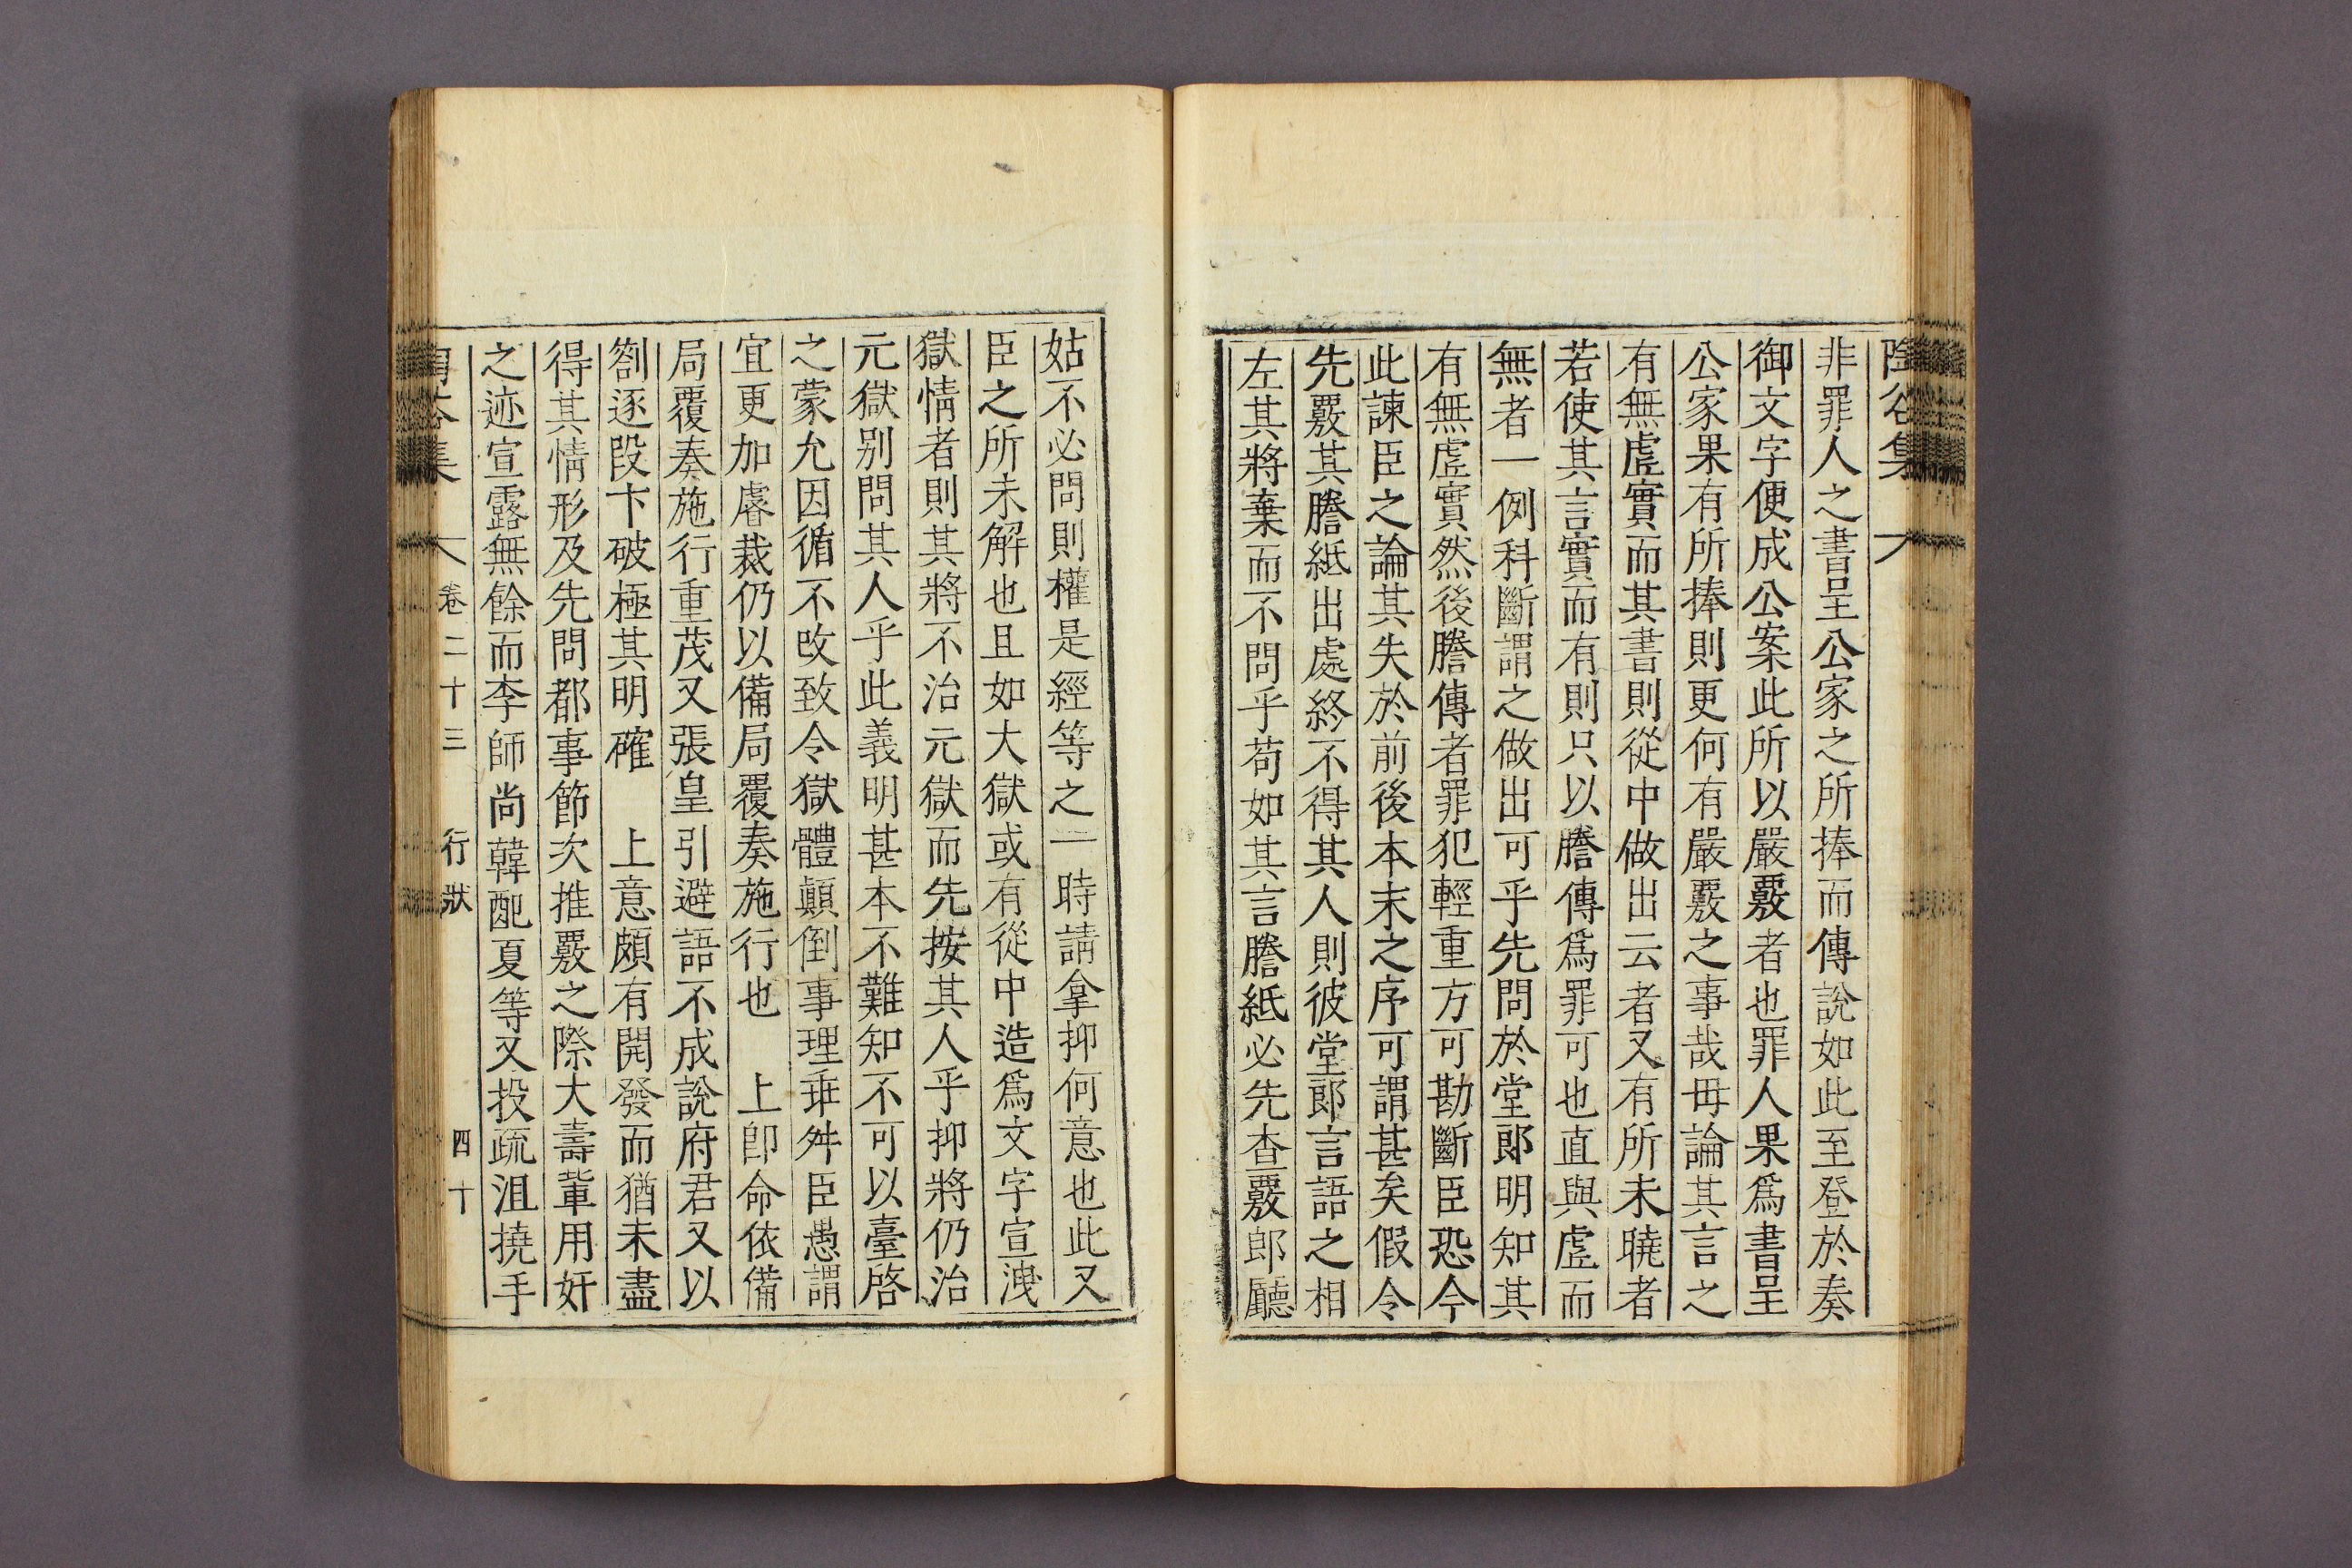 陶谷集
非罪人之書呈公家之所捧而傳說如此至登於奏
御文字便成公案此所以嚴覈者也罪人果爲書呈
公家果有所捧則更何有嚴覈之事哉毋論其言之
有無虛實而其書則從中做出云者又有所未曉者
若使其言實而有則只以謄傳爲罪可也直與虛而
無者一例科斷謂之做出可乎先問於堂郞明知其
有無虛實然後謄傳者罪犯輕重方可勘斷臣恐今
此諫臣之論其失於前後本末之序可謂甚矣假令
先覈其謄紙出處終不得其人則彼堂郞言語之相
左其將棄而不問乎苟如其言謄紙必先查覈郎廳
姑不必問則權是經等之一時請拿抑何意也此又
臣之所未解也且如大獄或有從中造爲文字宣洩
獄情者則其將不治元獄而先按其人乎抑將仍治
元獄別問其人乎此義明甚本不難知不可以臺啓
之蒙允因循不改致令獄體顚倒事理乖舛臣愚謂
宜更加睿裁仍以備局覆奏施行也 上卽命依備
局覆奏施行重茂又張皇引避語不成說府君又以
劄逐段卞破極其明確 上意頗有開發而猶未盡
得其情形及先問都事節次推覈之際大壽輩用奸
之迹宣露無餘而李師尚韓配夏等又投疏沮撓手
陶谷集 卷二十三 行狀 四十